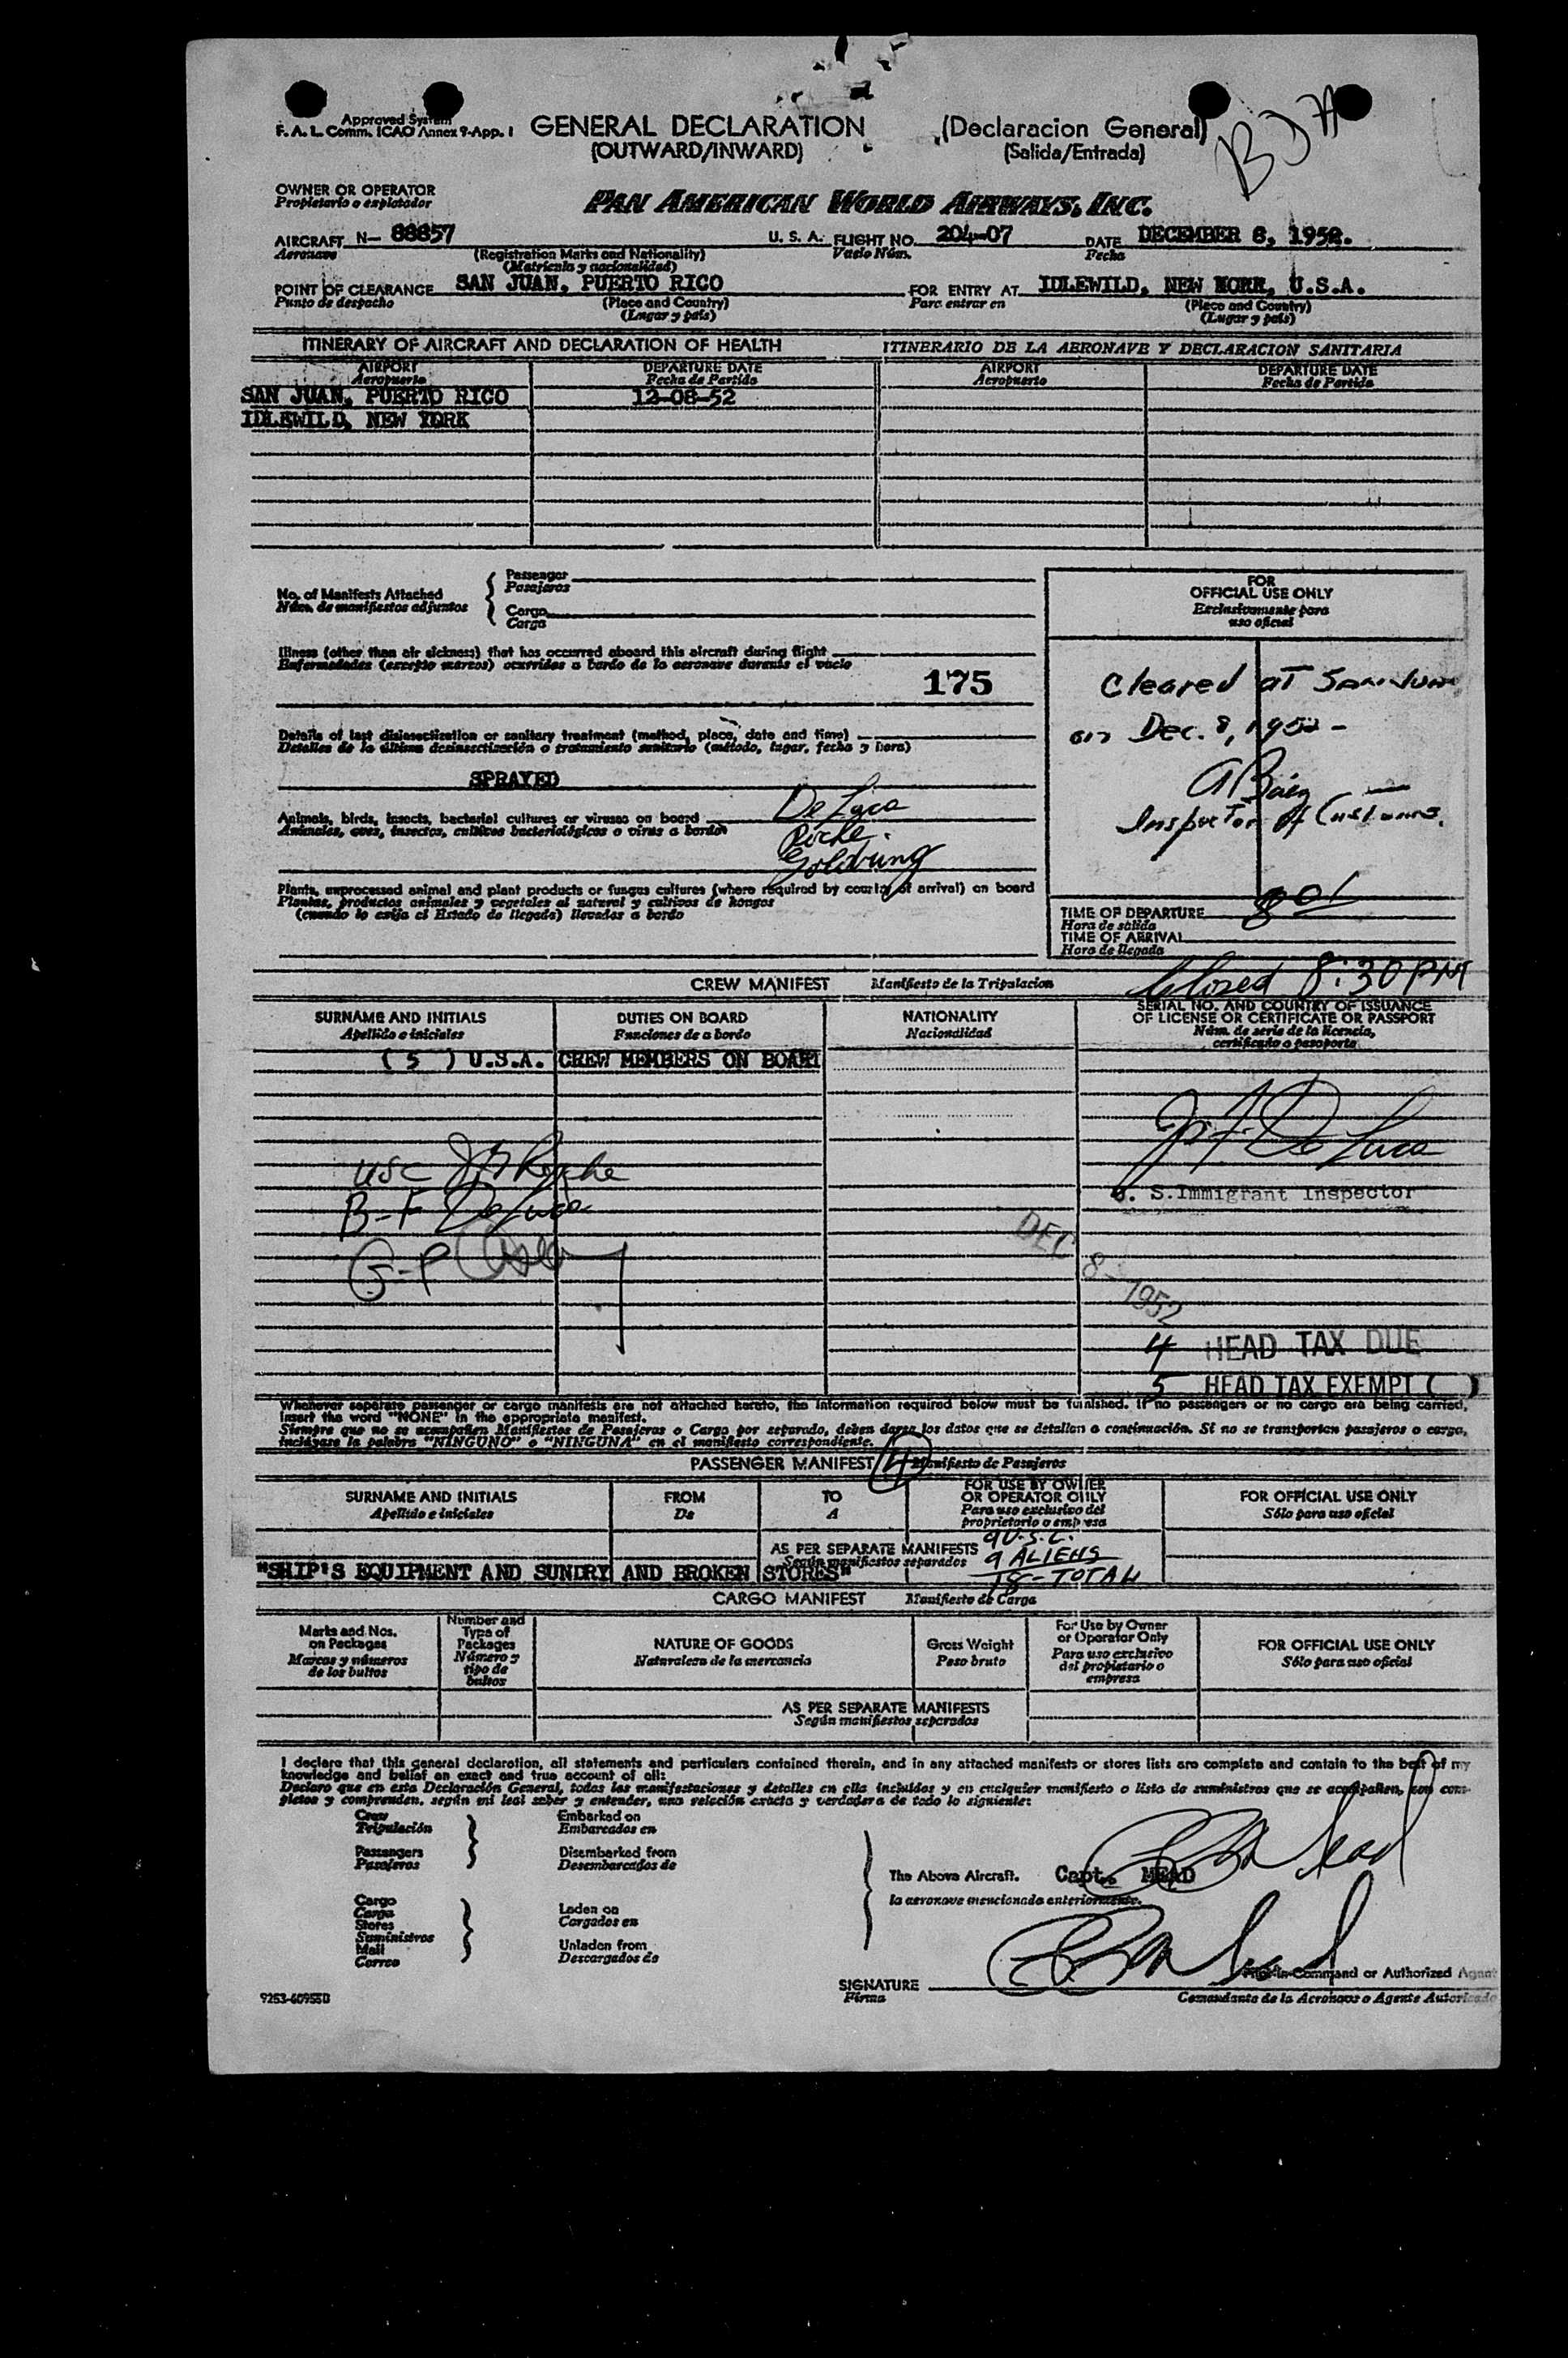 Approved System
F. A. L. Comm. ICAO Annex 9-App. 1
GENERAL DECLARATION (Declaracion General)
(OUTWARD/INWARD) (Salida/Entrada)
OWNER OR OPERATOR
Propietario o explotador
PAN AMERICAN WORLD AIRWAYS, INC.
AIRCRAFT N- 88857 U. S. A. FLIGHT NO. 204-07 DATE DECEMBER 8, 1952.
Aeronave (Registration Marks and Nationality) Vuelo Núm. Fecha
(Matrícula y nacionalidad)
POINT OF CLEARANCE SAN JUAN, PUERTO RICO FOR ENTRY AT IDLEWILD, NEW YORK, U.S.A.
Punto de despacho (Place and Country) Para entrar en (Place and Country)
(Lugar y país) (Lugar y país)
ITINERARY OF AIRCRAFT AND DECLARATION OF HEALTH ITINERARIO DE LA AERONAVE Y DECLARACION SANITARIA
AIRPORT DEPARTURE DATE AIRPORT DEPARTURE DATE
Aeropuerto Fecha de Partida Aeropuerto Fecha de Partida
SAN JUAN, PUERTO RICO 12-08-52
IDLEWILD, NEW YORK
No. of Manifests Attached
Núm. de manifiestos adjuntos
Passenger
Pasajeros
Cargo
Carga
FOR
OFFICIAL USE ONLY
Exclusivamente para
uso oficial
Illness (other than air sickness) that has occurred aboard this aircraft during flight
Enfermedades (excepto mareos) ocurridas a bordo de la aeronave durante el vuelo
175
Cleared at San Juan
on Dec. 8, 1952 -
A Báez
Inspector of Customs.
Details of last disinsectization or sanitary treatment (method, place, date and time)
Detalles de la última desinsectización o tratamiento sanitario (método, lugar, fecha y hora)
SPRAYED
Animals, birds, insects, bacterial cultures or viruses on board
Animales, aves, insectos, cultivos bacteriológicos o virus a bordo
De Luca
Roche.
Goldring
Plants, unprocessed animal and plant products or fungus cultures (where required by country of arrival) on board
Plantas, productos animales y vegetales al natural y cultivos de hongos
(cuando lo exija el Estado de llegada) llevados a bordo
TIME OF DEPARTURE 8 01
Hora de salida
TIME OF ARRIVAL
Hora de llegada
Closed 8:30 PM
CREW MANIFEST Manifiesto de la Tripulacion
SURNAME AND INITIALS DUTIES ON BOARD NATIONALITY SERIAL NO. AND COUNTRY OF ISSUANCE
OF LICENSE OR CERTIFICATE OR PASSPORT
Apellido e iniciales Funciones de a bordo Nacionalidad Núm. de serie de la licencia,
certificado o pasaporte
( 5 ) U.S.A. CREW MEMBERS ON BOARD
J. F. De Luca
U. S. Immigrant Inspector
USC Roche
B-F De Luca
G-P
DEC 8-1952
4 HEAD TAX DUE
5 HEAD TAX EXEMPT ( )
Whenever separate passenger or cargo manifests are not attached hereto, the information required below must be furnished. If no passengers or no cargo are being carried,
insert the word "NONE" in the appropriate manifest.
Siempre que no se acompañen Manifiestos de Pasajeros o Carga por separado, deben darse los datos que se detallan a continuación. Si no se transportan pasajeros o carga,
inclúyase la palabra "NINGUNO" o "NINGUNA" en el manifiesto correspondiente.
PASSENGER MANIFEST (4) Manifiesto de Pasajeros
SURNAME AND INITIALS FROM TO FOR USE BY OWNER
OR OPERATOR ONLY FOR OFFICIAL USE ONLY
Apellido e iniciales De A Para uso exclusivo del
propietario o empresa Sólo para uso oficial
AS PER SEPARATE MANIFESTS 9 U.S.C.
Según manifiestos separados 9 ALIENS
18-TOTAL
"SHIP'S EQUIPMENT AND SUNDRY AND BROKEN STORES"
CARGO MANIFEST Manifiesto de Carga
Marks and Nos.
on Packages
Marcas y números
de los bultos
Number and
Type of
Packages
Número y
tipo de
bultos
NATURE OF GOODS
Naturaleza de la mercancia
Gross Weight
Peso bruto
For Use by Owner
or Operator Only
Para uso exclusivo
del propietario o
empresa
FOR OFFICIAL USE ONLY
Sólo para uso oficial
AS PER SEPARATE MANIFESTS
Según manifiestos separados
I declare that this general declaration, all statements and particulars contained therein, and in any attached manifests or stores lists are complete and contain to the best of my
knowledge and belief an exact and true account of all:
Declaro que en esta Declaración General, todas las manifestaciones y detalles en ella incluídos y en cualquier manifiesto o lista de suministros que se acompañen, son com-
pletos y comprenden, según mi leal saber y entender, una relación exacta y verdadera de todo lo siguiente:
Crew
Tripulación
Passengers
Pasajeros
Embarked on
Embarcados en
Disembarked from
Desembarcados de
Cargo
Carga
Stores
Suministros
Mail
Correo
Laden on
Cargados en
Unladen from
Descargados de
The Above Aircraft. Capt. MEAD
la aeronave mencionada anteriormente.
SIGNATURE Pilot-in-Command or Authorized Agent
Firma Comandante de la Aeronave o Agente Autorizado
9253-60955D